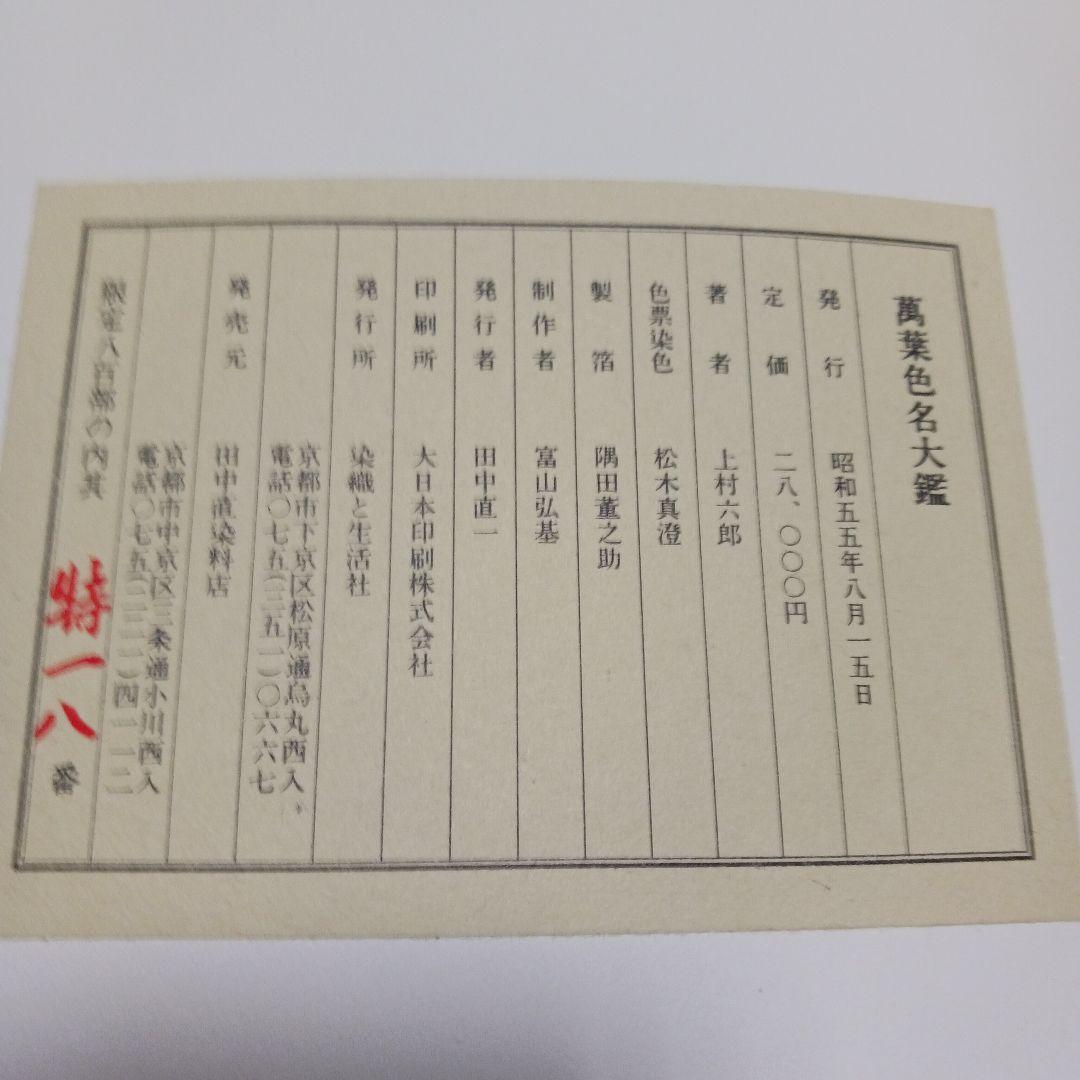 萬葉色名大鑑
発行 昭和五五年八月一五日
定価 二八、〇〇〇円
著者 上村六郎
色票染色 松木真澄
製箔 隅田董之助
制作者 富山弘基
発行者 田中直一
印刷所 大日本印刷株式会社
発行所 染織と生活社
京都市下京区松原通烏丸西入
電話〇七五(三五一)〇六六七
発売元 田中直染料店
京都市中京区三条通小川西入
電話〇七五(二二一)四一一二
限定八百部の内其 特一八 番